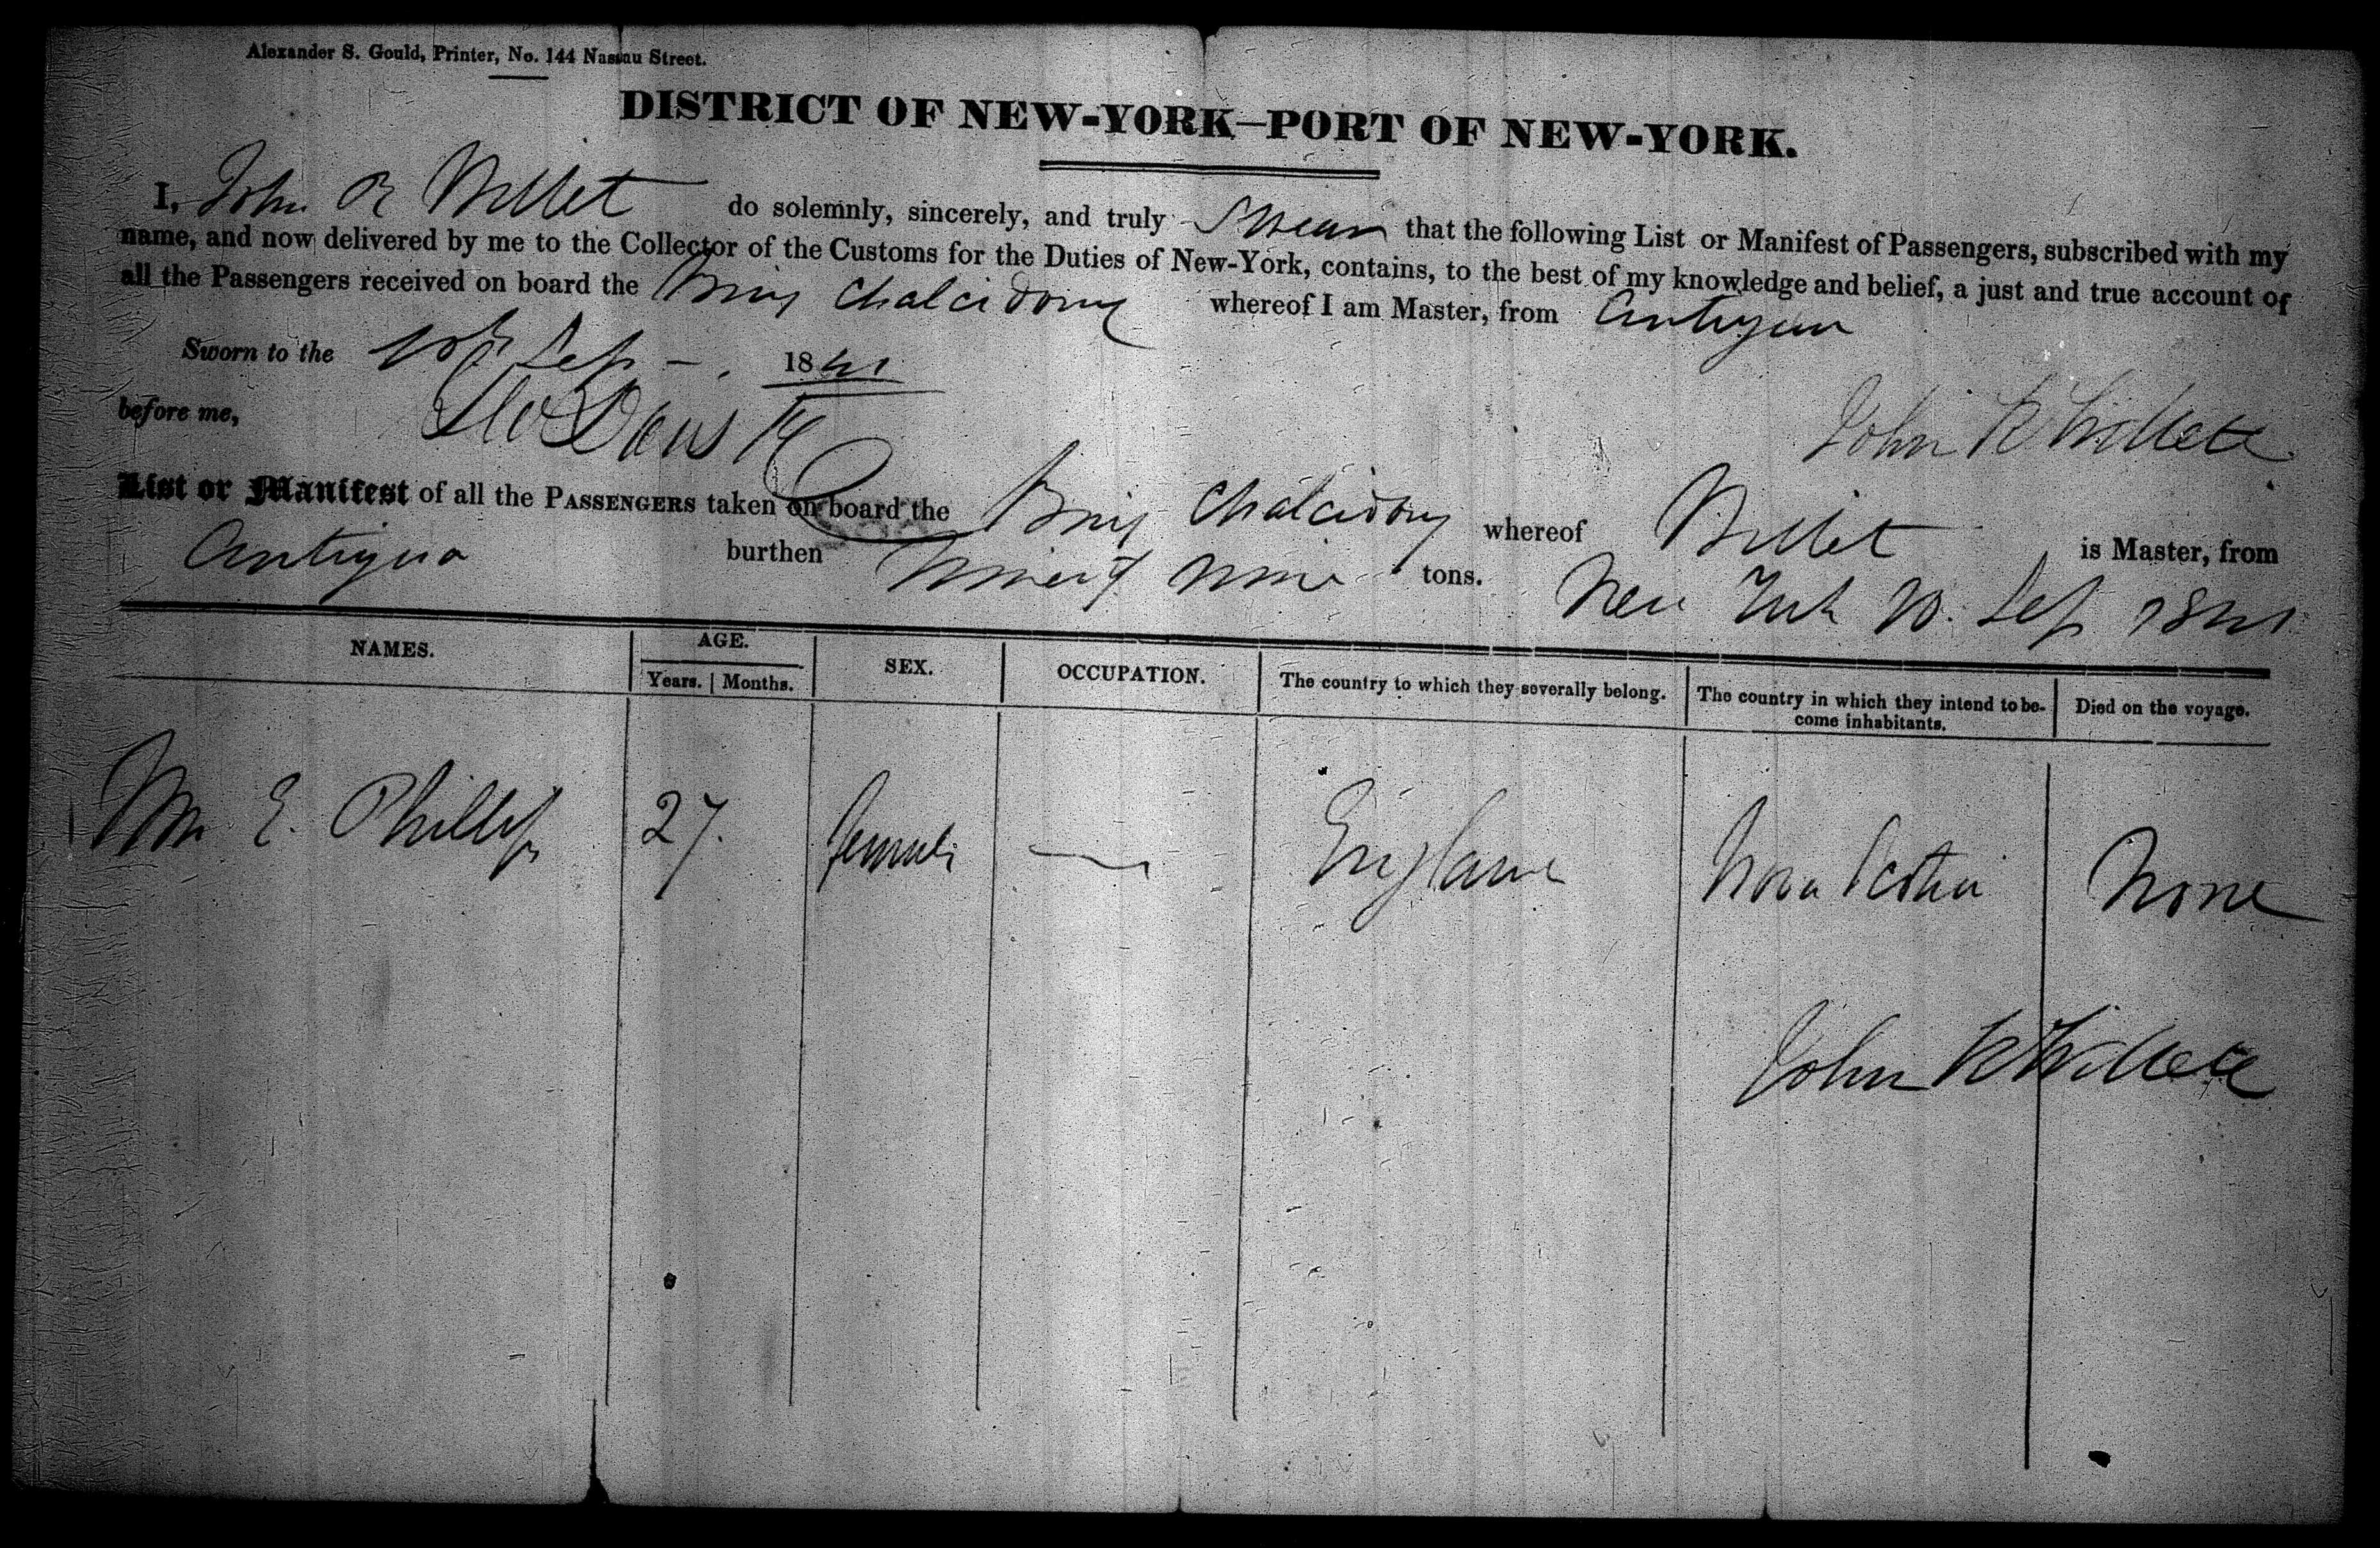 Alexander S. Gould, Printer, No. 144 Nassau Street.
DISTRICT OF NEW-YORK—PORT OF NEW-YORK.
I, John R Willet do solemnly, sincerely, and truly Swear that the following List or Manifest of Passengers, subscribed with my
name, and now delivered by me to the Collector of the Customs for the Duties of New-York, contains, to the best of my knowledge and belief, a just and true account of
all the Passengers received on board the Brig Chalcidony whereof I am Master, from Antigua
Sworn to the Sep 1841
before me,
John R Willett
List or Manifest of all the PASSENGERS taken on board the Brig Chalcidony whereof Willet is Master, from
Antigua burthen Ninety nine tons. New York 10. Sep 1841
NAMES. AGE. SEX. OCCUPATION. The country to which they severally belong. The country in which they intend to be-come inhabitants. Died on the voyage.
Years. | Months.
E. Phillips 27. female — England Nova Scotia None
John R Willett